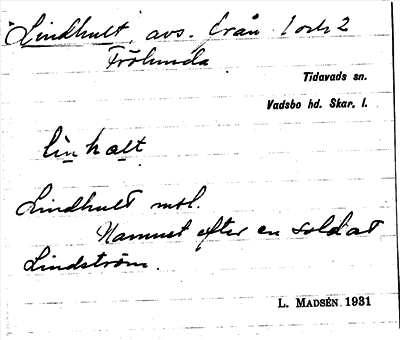 Lindhult, avs. från 1 och 2
Frölunda
Tidavads sn.
Vadsbo hd. Skar. l.
lin hælt
Lindhult
Namnet efter en soldat
Lindström.
L. MADSÉN 1931